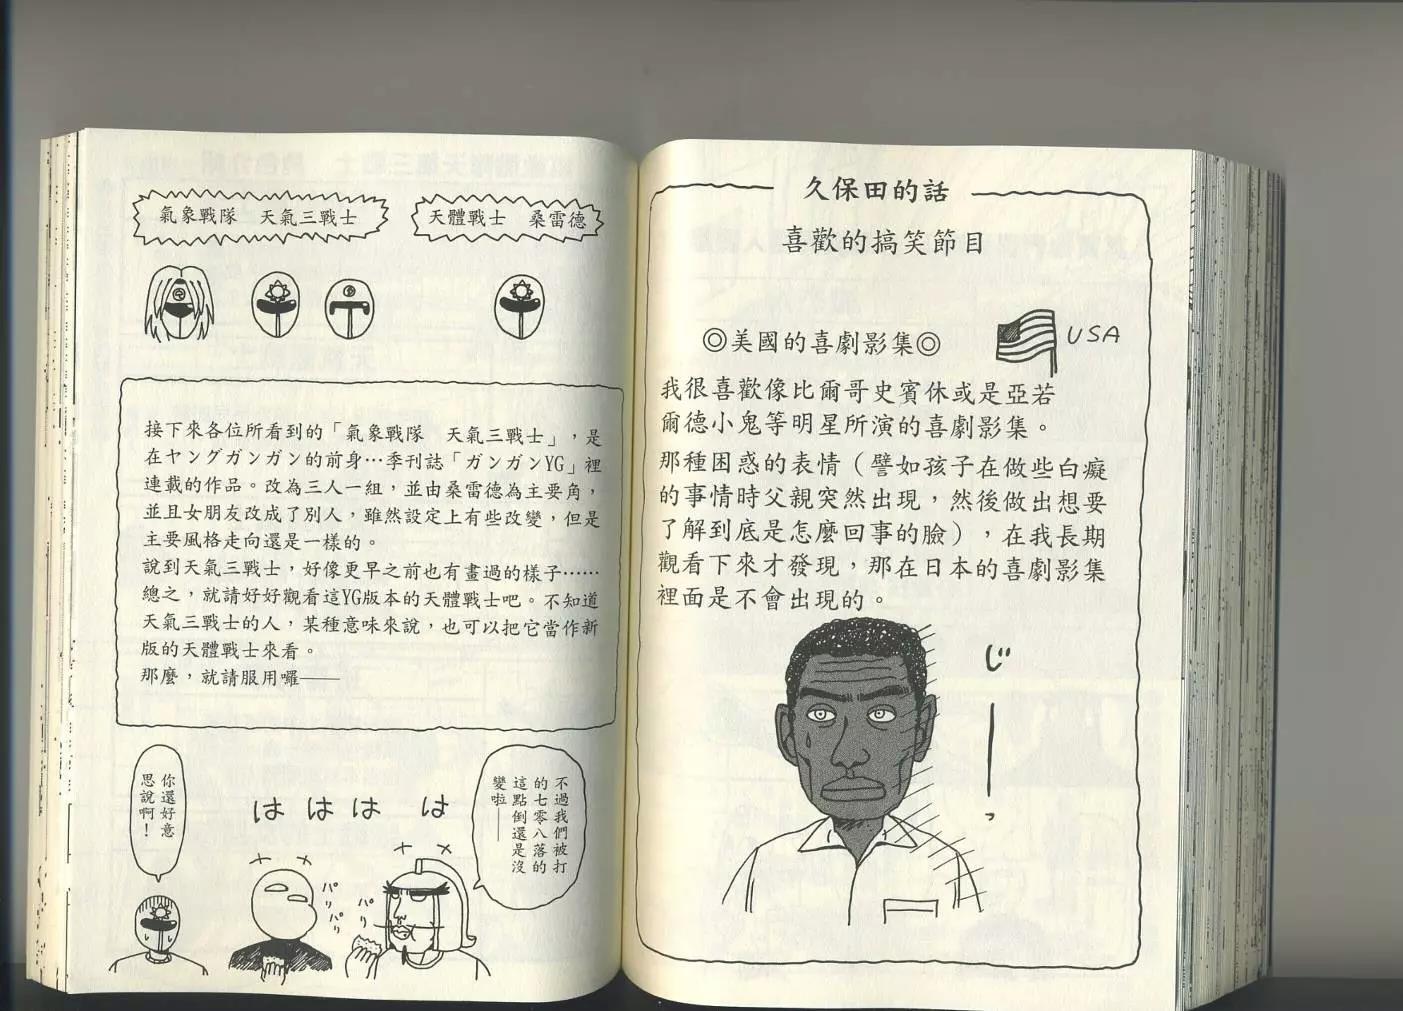 氣象戰隊　天氣三戰士
天體戰士　桑雷德
接下來各位所看到的「氣象戰隊　天氣三戰士」，是
在ヤングガンガン的前身…季刊誌「ガンガンYG」裡
連載的作品。改為三人一組，並由桑雷德為主要角，
並且女朋友改成了別人，雖然設定上有些改變，但是
主要風格走向還是一樣的。
說到天氣三戰士，好像更早之前也有畫過的樣子……
總之，就請好好觀看這YG版本的天體戰士吧。不知道
天氣三戰士的人，某種意味來說，也可以把它當作新
版的天體戰士來看。
那麼，就請服用囉——
不過我們被打
的七零八落的
這點倒還是沒
變啦——
はははは
パリパリ
パリ
你還好意
思說啊！
久保田的話
喜歡的搞笑節目
◎美國的喜劇影集◎
USA
我很喜歡像比爾哥史賓休或是亞若
爾德小鬼等明星所演的喜劇影集。
那種困惑的表情（譬如孩子在做些白癡
的事情時父親突然出現，然後做出想要
了解到底是怎麼回事的臉），在我長期
觀看下來才發現，那在日本的喜劇影集
裡面是不會出現的。
じーっ